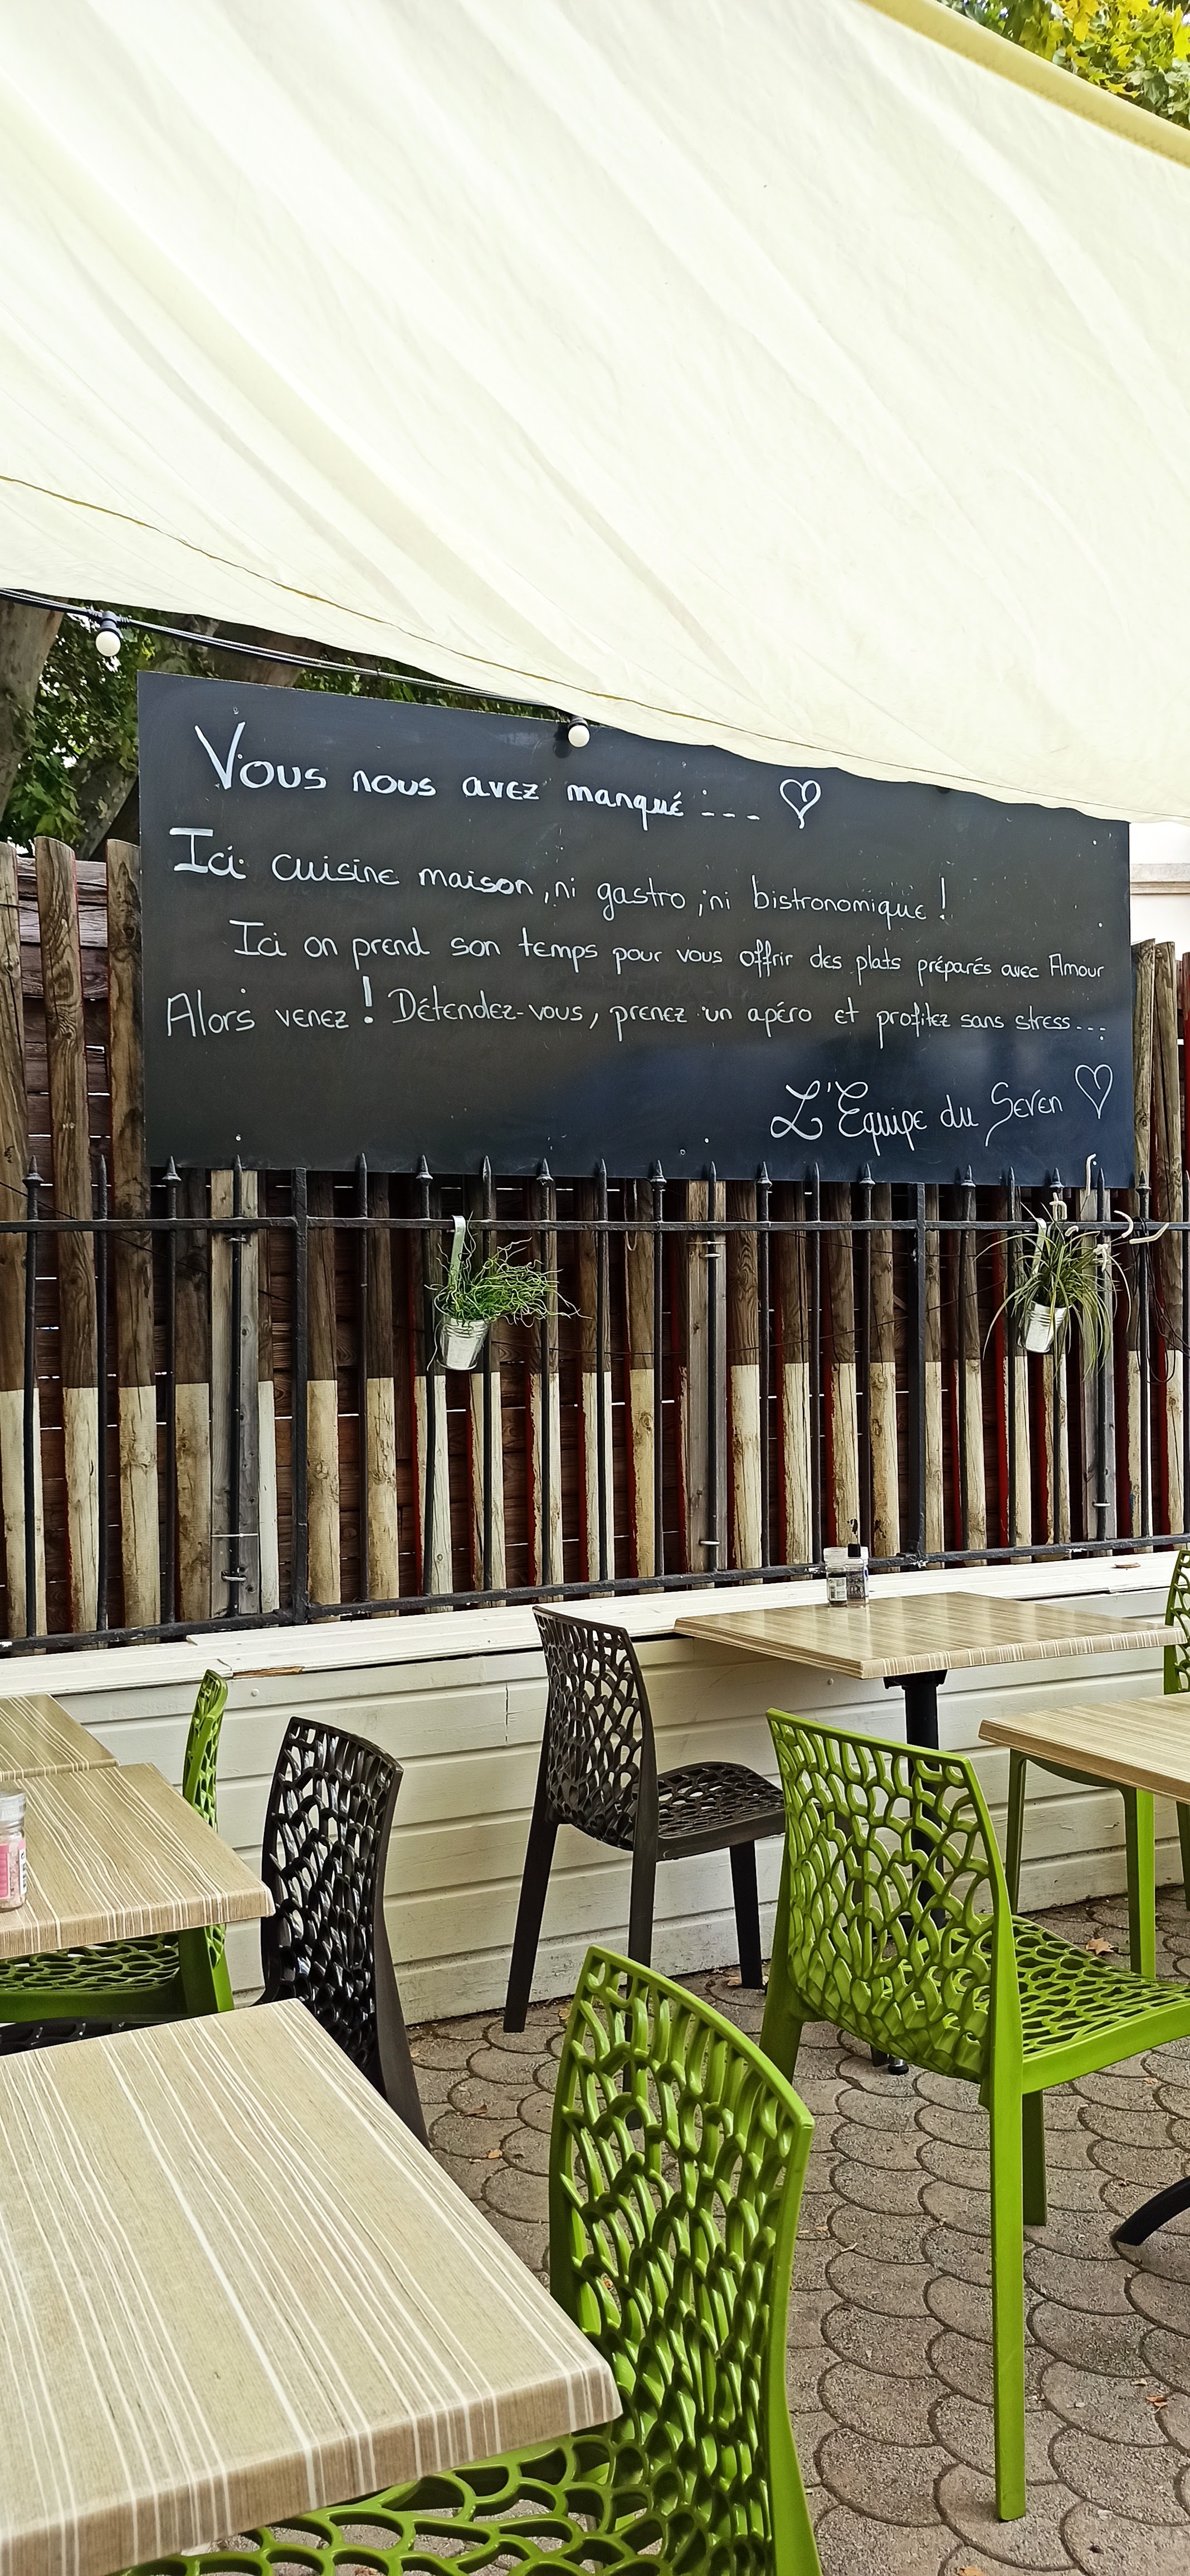 Vous nous avez manqué :... ♡
Ici cuisine maison, ni gastro, ni bistronomique !
Ici on prend son temps pour vous offrir des plats préparés avec Amour
Alors venez ! Détendez-vous, prenez un apéro et profitez sans stress...
L'Equipe du Seven ♡